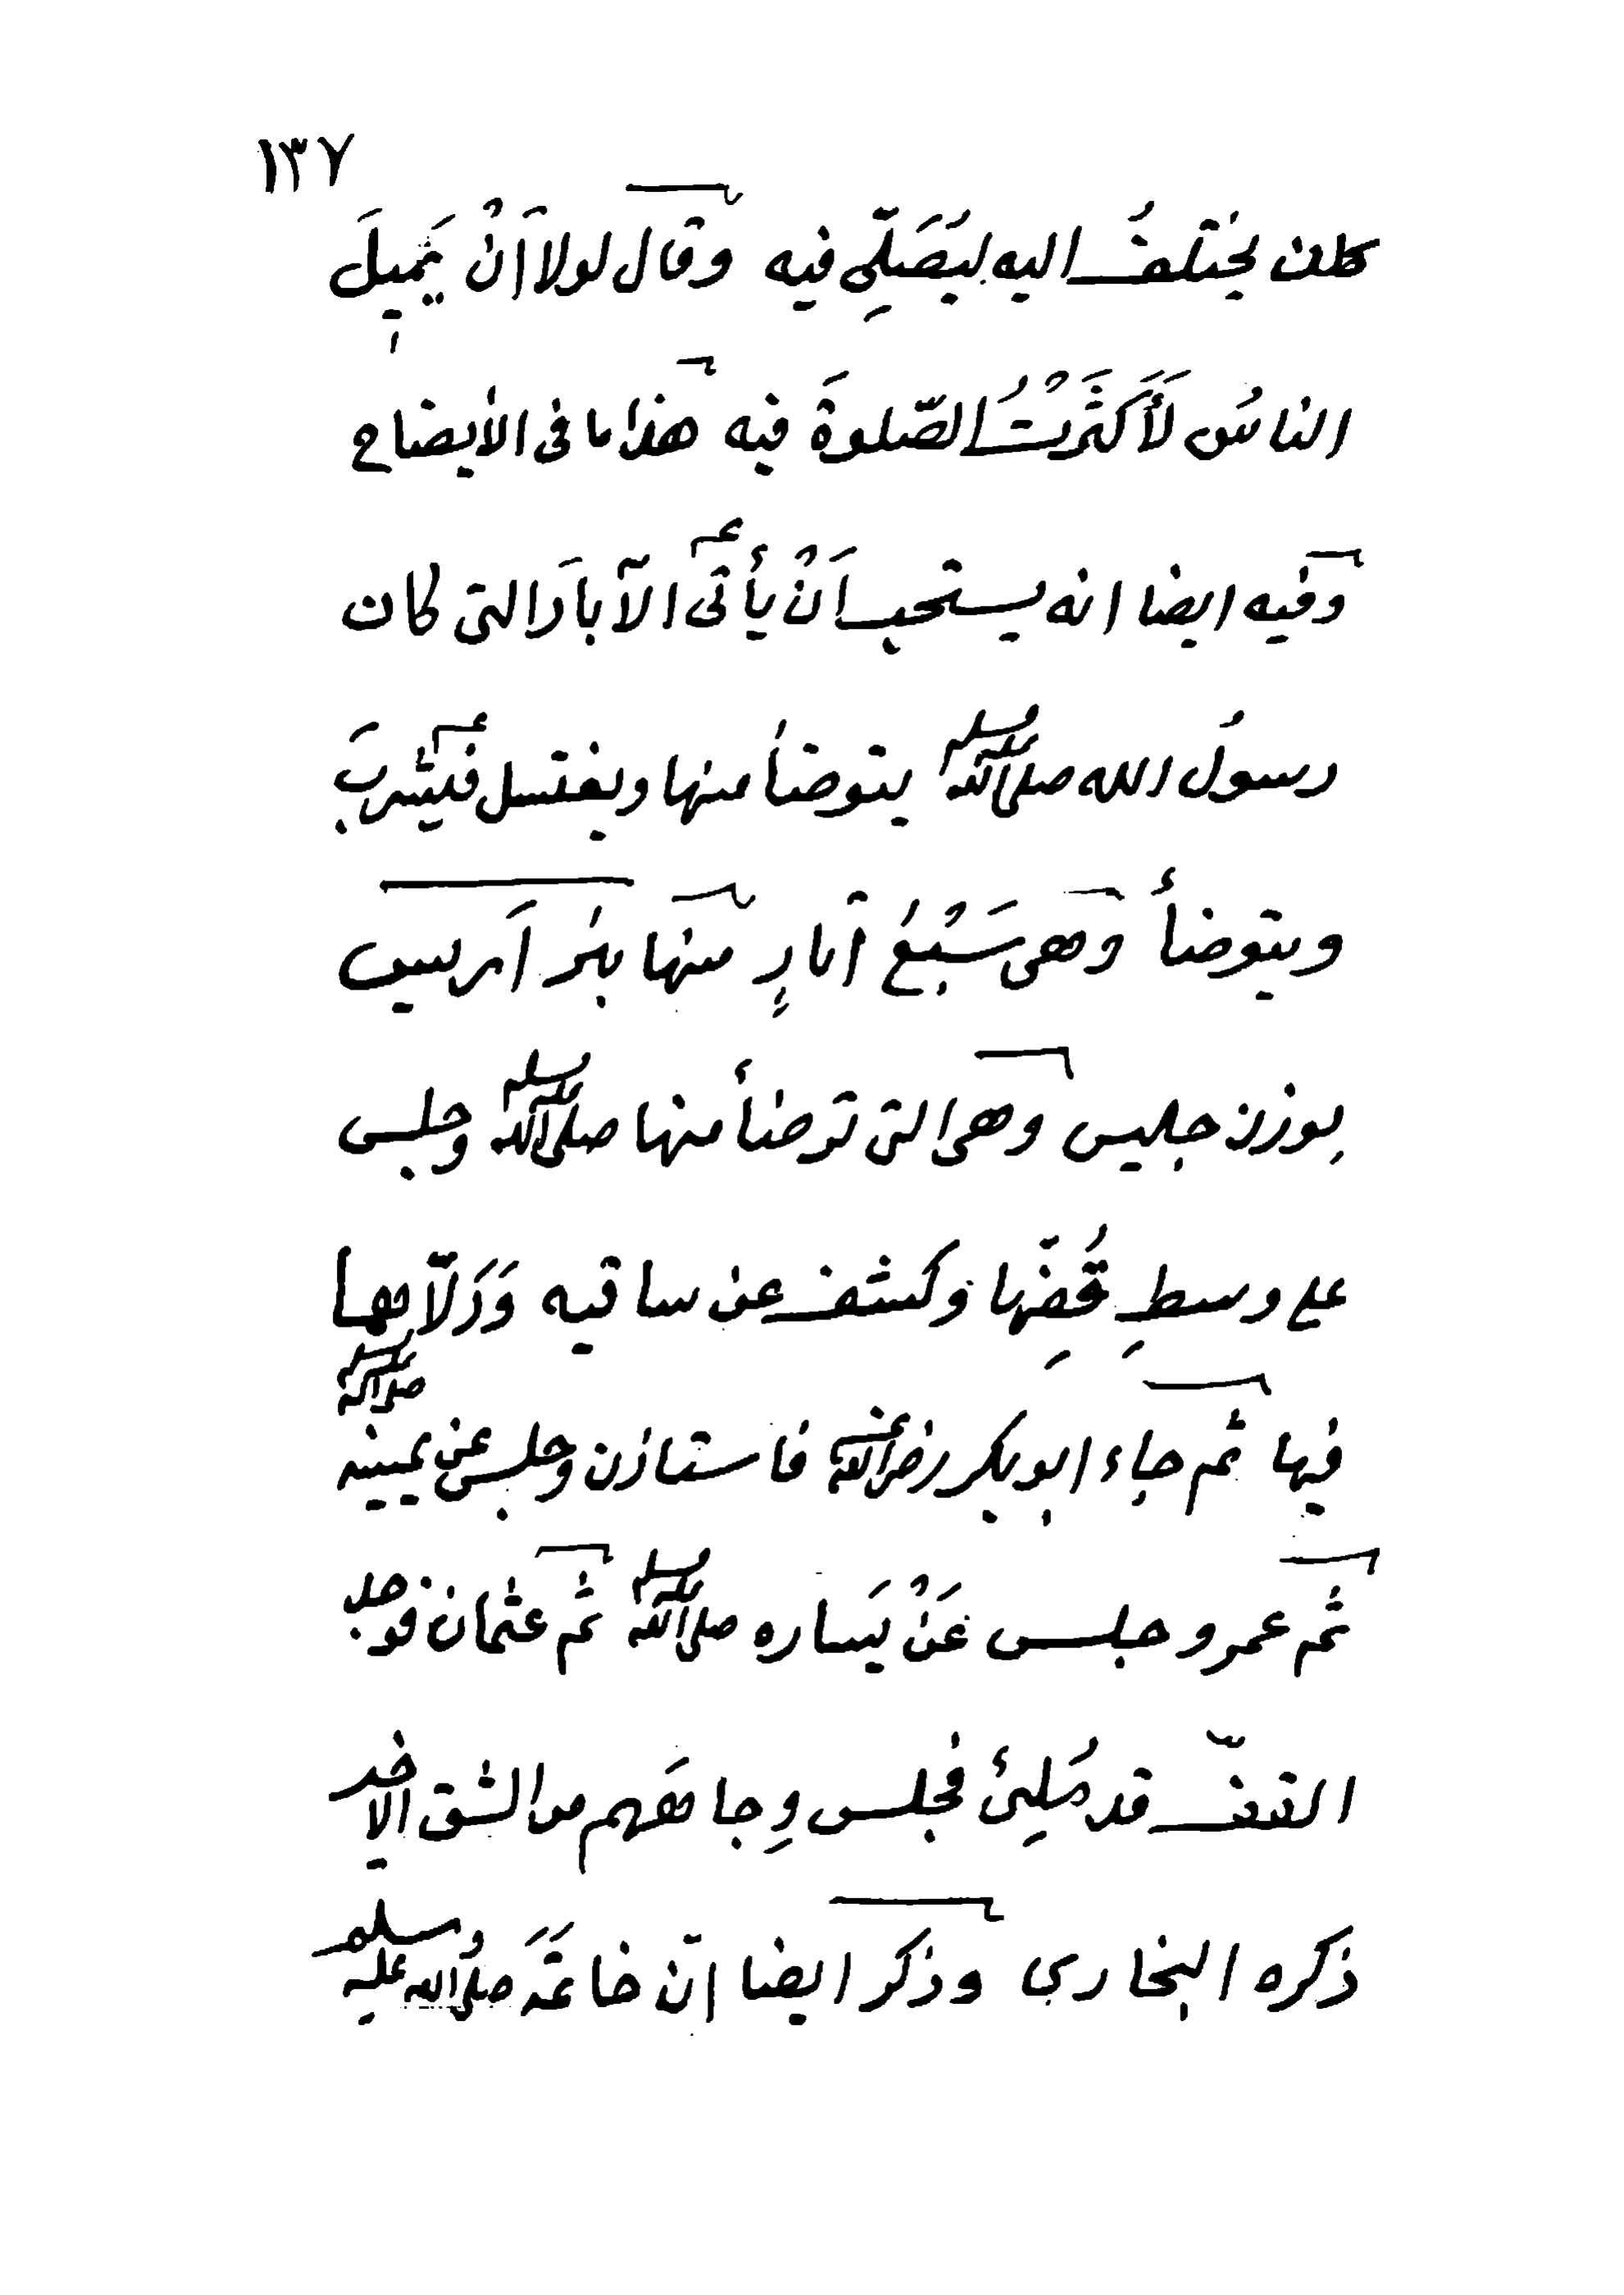 ١٣٧
كان يختلفُ اليه ليُصَلِّي فيه وقال لولا اَنْ يَميلَ
الناسُ لَأَكثَرْتُ الصّلوةَ فيه هذا ما فى الايضاح
وفيه ايضا انه يستحب اَنْ يأتى الآبارَ التى كان
رسولُ الله صلى الله عليه وسلم يتوضأ منها ويغتسل فيشربَ
ويتوضأ وهى سَبْعُ آبارٍ منها بئر اَريس
بوزن جليس وهى التى توضأ منها صلى الله عليه وسلم وجلس
على وسطِ قُفِّها وكشف عن ساقيه وَدَلّاهما
فيها ثم جاء ابو بكر رضى الله عنه فاستاذن وجلس عن يمينه صلى الله عليه وسلم
ثم عمر وجلس عَنْ يَساره صلى الله عليه وسلم ثم عثمان فوجد
القفّ قد مُلِئَ فجلس وِجاهَهم من الشق الاخر
ذكره البخارى وذكر ايضا انّ خاتمَه صلى الله عليه وسلم